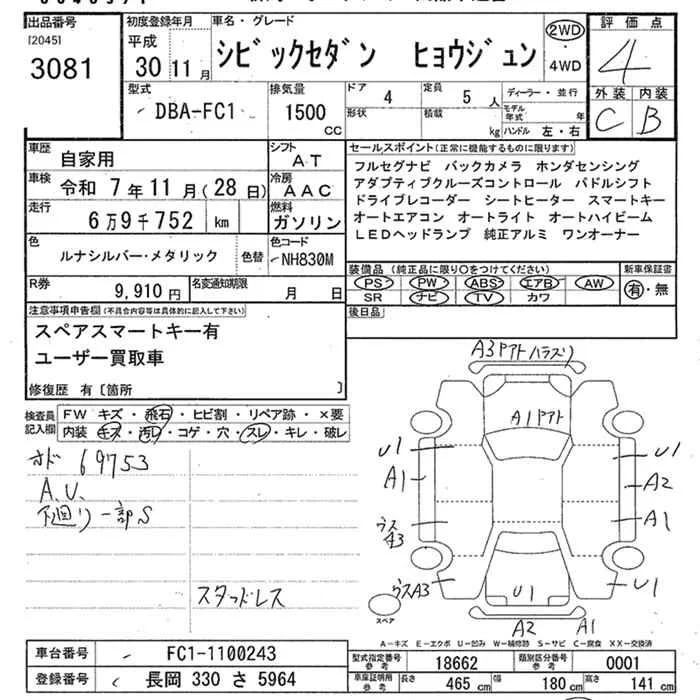 出品番号
[2045]
3081
初度登録年月
平成
30 11月
車名・グレード
シビックセダン ヒョウジュン
2WD
・
4WD
評価点
4
外装 内装
C B
型式
DBA-FC1
排気量
1500
CC
ドア
4
定員
5 人
形状
積載
kg
ディーラー・並行
モデル年式 年
ハンドル 左・右
車歴
自家用
シフト
AT
車検
令和 7年11月(28日)
冷房
AAC
走行
6万9千752 km
燃料
ガソリン
色
ルナシルバー・メタリック
色替
色コード
NH830M
R券
9,910円
名変通知期限
月 日
セールスポイント(正常に機能するものに限ります)
フルセグナビ バックカメラ ホンダセンシング
アダプティブクルーズコントロール パドルシフト
ドライブレコーダー シートヒーター スマートキー
オートエアコン オートライト オートハイビーム
LEDヘッドランプ 純正アルミ ワンオーナー
装備品(純正品に限り○をつけてください)
PS PW ABS エアB AW
SR ナビ TV カワ
新車保証書
有・無
後日品
注意事項申告欄(不具合内容等は具体的に記入して下さい)
スペアスマートキー有
ユーザー買取車
修復歴 有〔箇所 〕
検査員
記入欄
FW キズ・飛石・ヒビ割・リペア跡・×要
内装 キズ・汚れ・コゲ・穴・スレ・キレ・破レ
オド 69753
A.U.
下廻り一部S
スタッドレス
A3アト
A1アト
U1
A1
ウスA3
ウスA3
U1
A2
A1
U1
U1
A2
A1
スペア
A-キズ E-エクボ U-凹み W-補修跡 S-サビ C-腐食 XX-交換済
車台番号
FC1-1100243
登録番号
長岡 330 さ 5964
型式指定番号
参考
18662
類別区分番号
参考
0001
車庫証明用
参考
長さ
465 cm
幅
180 cm
高さ
141 cm